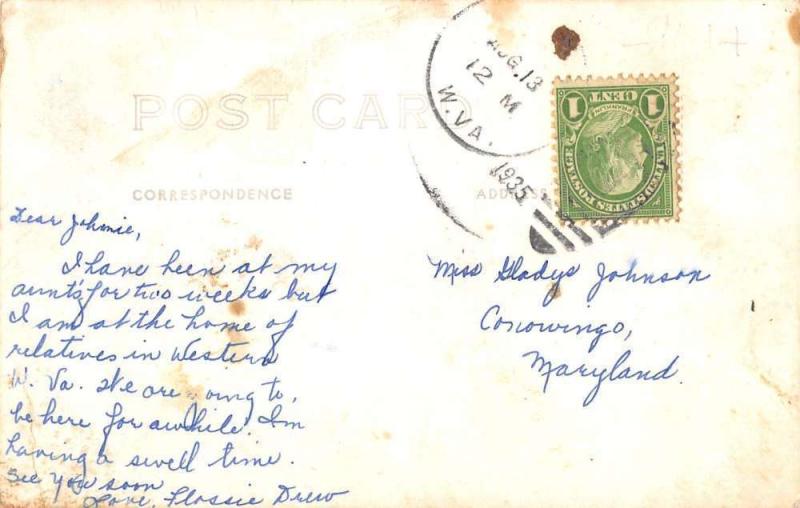 POST CARD
CORRESPONDENCE
ADDRESS
AUG.13
12 M
W.VA.
1935
1 CENT 1
FRANKLIN
UNITED STATES POSTAGE
Dear Johnie,
I have been at my
aunt's for two weeks but
I am at the home of
relatives in Western
W. Va. We are going to,
be here for awhile. I'm
having a swell time.
See you soon
Love, Flossie Drew
Miss Gladys Johnson
Conowingo,
Maryland.